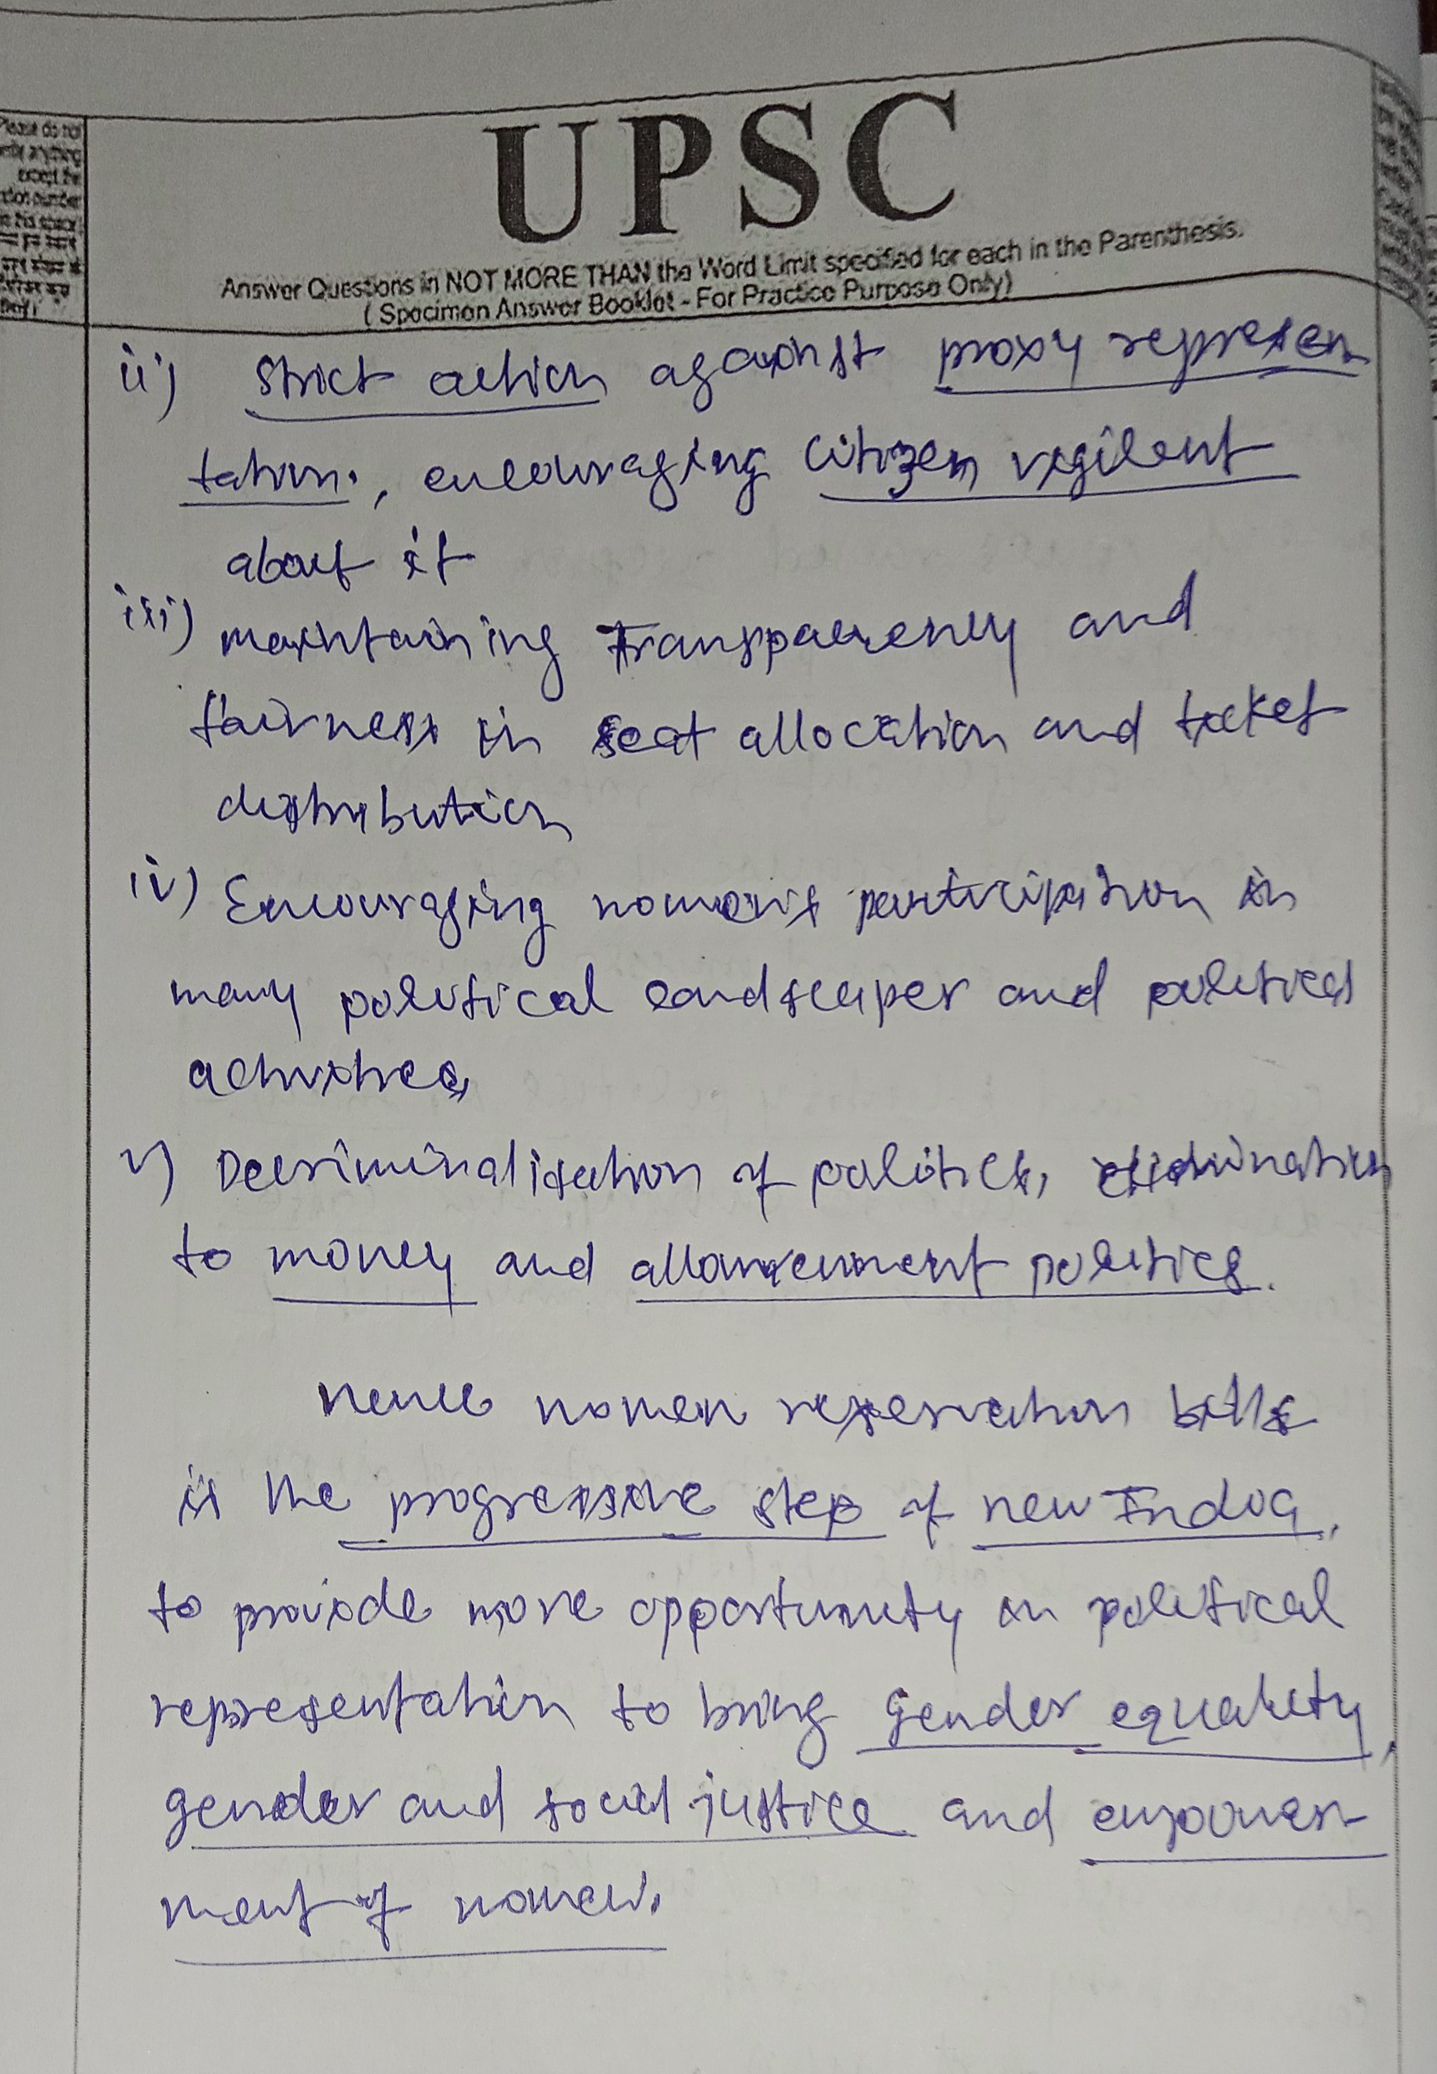 Please do not
write anything
except the
question number
in this space
UPSC
Answer Questions in NOT MORE THAN the Word Limit specified for each in the Parenthesis.
( Specimen Answer Booklet - For Practice Purpose Only)
ii) Strict action against proxy represen
tation., encouraging citizen vigilent
about it
iii) maintaining Transparency and
fairness in seat allocation and ticket
distribution
iv) Encouraging women's participation in
many political landscapes and political
activities,
v) Decriminalisation of politics,
to money and politics.
Hence women reservation bills
is the progressive step of new India,
to provide more opportunity in political
representation to bring gender equality,
gender and social justice and empower
ment of women.